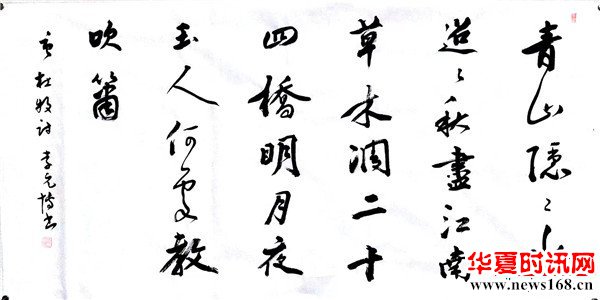 青山隐〻水
迢〻秋盡江南
草木凋二十
四橋明月夜
玉人何處教
吹簫
杜牧诗 李元
华夏时讯网
www.news168.cn